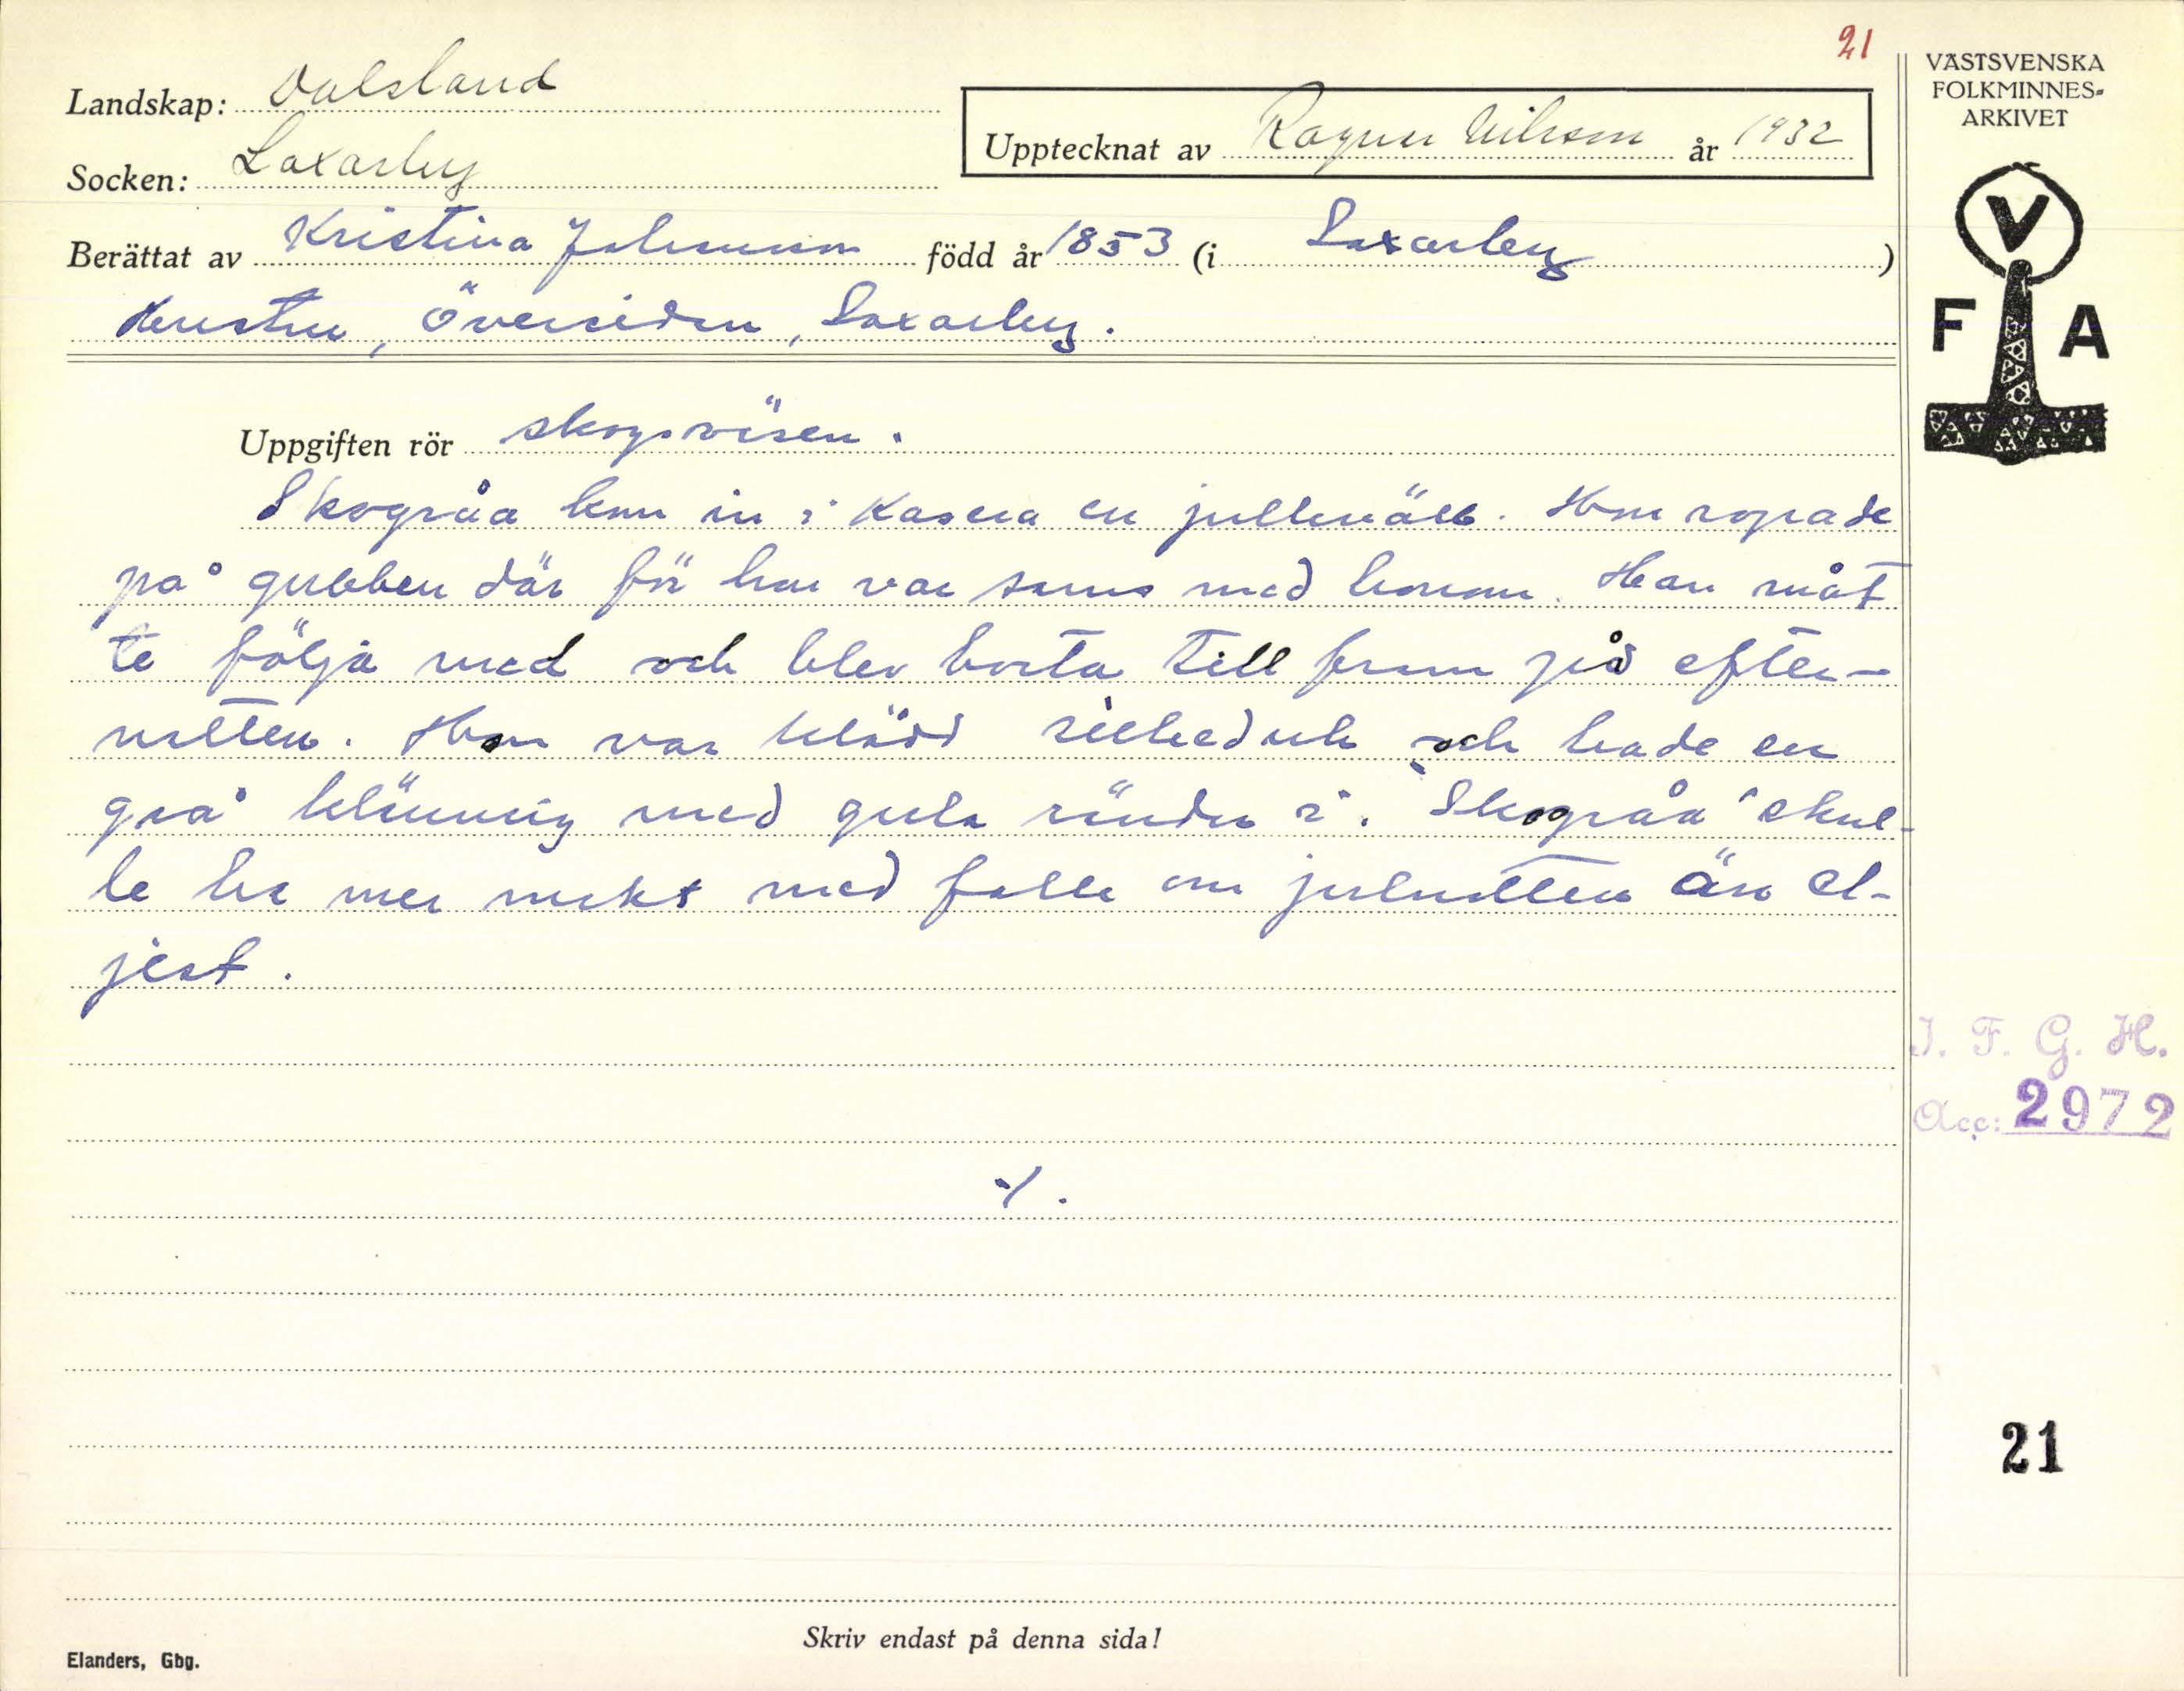 21
Landskap: Dalsland
Socken: Laxarby
Upptecknat av Ragnar Nilsson år 1932
Berättat av Kristina Johansson född år 1853 (i Laxarby)
Översidan, Laxarby.
Uppgiften rör skogsväsen.
Skogråa kom in i Kasera en julkväll. Hon ropade
på gubben där för hon var sams med honom. Han måt
te följa med och blev borta till fram på efter-
natten. Hon var klädd silkeduk och hade en
grå klänning med gula ränder i. "Skogråa" skul-
le ha mer makt med folk om julnatten än el-
jest.
./.
VÄSTSVENSKA
FOLKMINNES-
ARKIVET
V
F A
I. F. G. H.
Acc: 2972
21
Skriv endast på denna sida!
Elanders, Gbg.